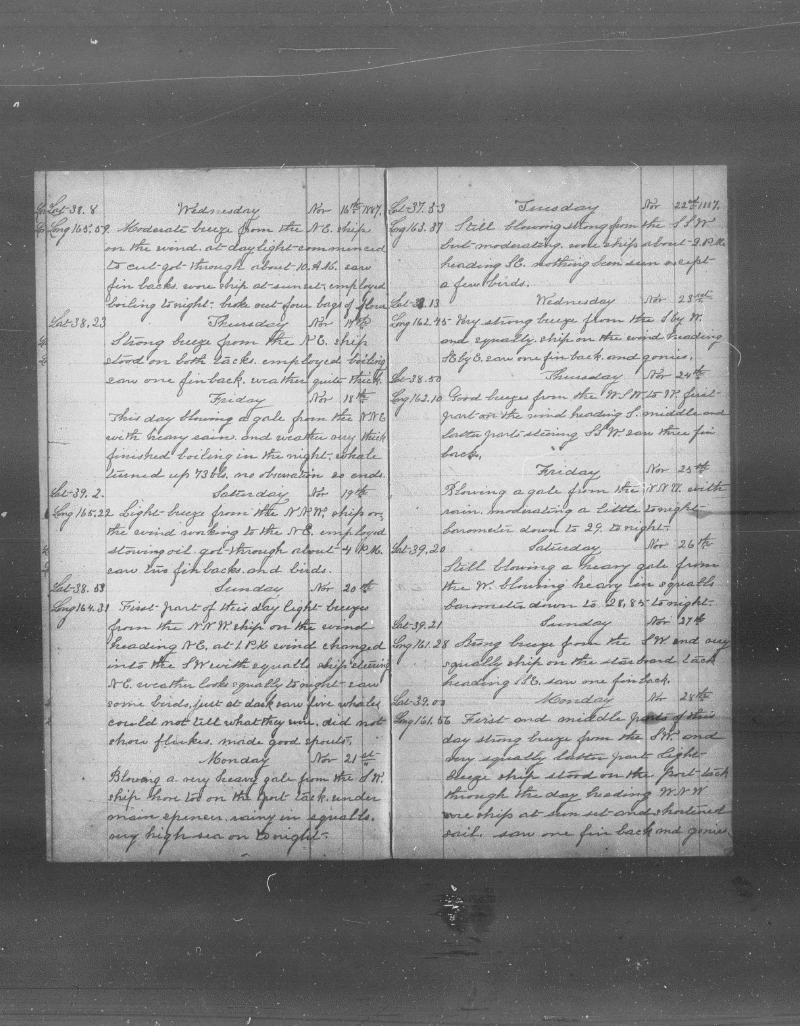 Lat 38.8 Wednesday Nov 16th 1887.
Long 165.59. Moderate breeze from the N.E. ship
on the wind. at day light commenced
to cut got through about 10 A.M. saw
fin backs. wore ship at sunset. employed
boiling to night. broke out four bags of flour
Lat 38.23 Thursday Nov 17th
Strong breeze from the N.E. ship
stood on both tacks. employed boiling
saw one finback. weather quite thick.
Friday Nov 18th
This day blowing a gale from the N.N.E.
with heavy rain. and weather very thick
finished boiling in the night. whale
turned up 73 bls. no observation so ends.
Lat 39.2. Saturday Nov 19th
Long 165.22 Light breeze from the N.N.W. ship on
the wind working to the N.E. employed
stowing oil. got through about 4 P.M.
saw two fin backs. and birds.
Lat 38.53 Sunday Nov 20th
Long 164.31 First part of this day light breezes
from the N.N.W ship on the wind
heading N.E. at 1 P.M. wind changed
into the SW with squalls ship steering
N.E. weather looks squally to night saw
some birds, just at dark saw five whales
could not till what they were. did not
show flukes. made good spouts.
Monday Nov 21st
Blowing a very heavy gale from the S.W.
ship hove too on the port tack. under
main spencer. rainy in squalls.
very high sea on to night.
Lat 37.53 Tuesday Nov 22nd 1887.
Long 163.37 Still blowing strong from the S.S.W
but moderating. wore ship about 2 P.M.
heading S.E. nothing seen except
a few birds.
Lat 38.13 Wednesday Nov 23rd
Long 162.45 Very strong breeze from the S by W.
and squally. ship on the wind heading
SE by E. saw one fin back. and gonies.
Lat 38.50 Thursday Nov 24th
Long 162.10 Good breezes from the W.S.W. to W. first
part on the wind heading S. middle and
latter parts steering S.S.W. saw three fin
backs.
Friday Nov 25th
Blowing a gale from the N.N.W. with
rain. moderating a little to night
barometer down to 29. to night.
Lat 39.20 Saturday Nov 26th
Still blowing a heavy gale from
the W. blowing heavy in squalls
barometer down to 28,85 to night.
Lat 39.21 Sunday Nov 27th
Long 161.28 Strong breeze from the S.W. and very
squally ship on the starboard tack
heading S.E. saw one fin back.
Lat 39.00 Monday Nov 28th
Long 161.56 First and middle parts of this
day strong breeze from the S.W. and
very squally latter part light
breeze ship stood on the port tack
through the day heading W.N.W
wore ship at sun set and shortened
sail. saw one fin back and gonies.